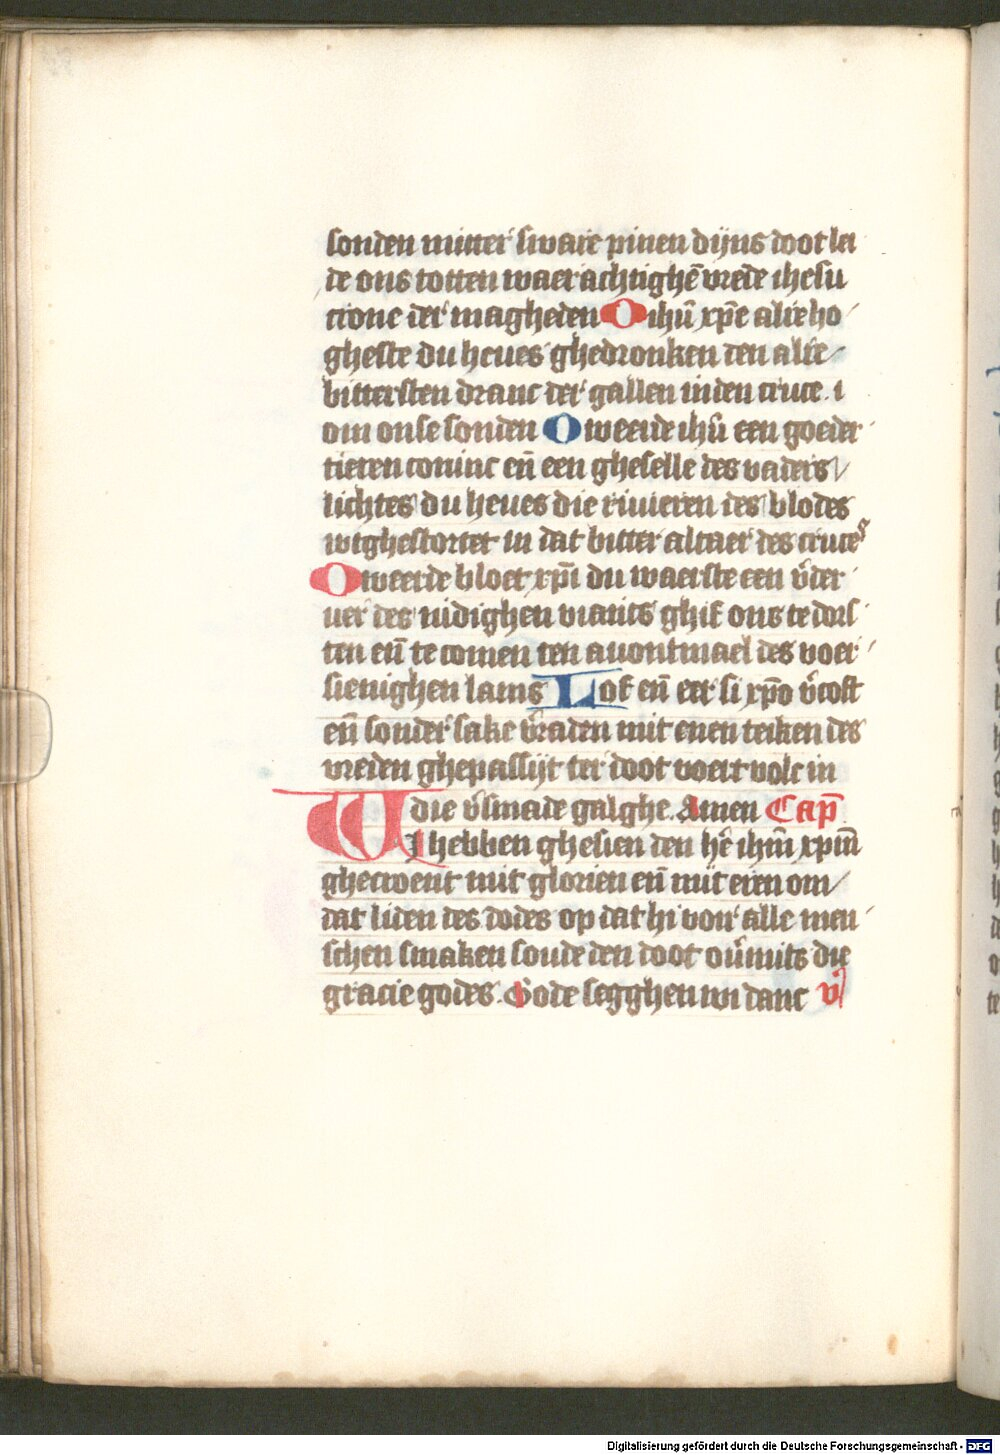 sonden mitter swaere pinen dijns doot lei
de ons totten waerachtighē vrede ihesu
crone der magheden O ihū xp̄e alreho
gheste du heues ghedronken den alre
bittersten dranc der gallen inden cruce. i
om onse sonden O weerde ihū een goeder
tieren coninc eñ een gheselle des vaders
lichtes du heues die riuieren des blodes
wtghestortet in dat bitter altaer des cruces
O weerde bloet xp̄i du waerste een v̄der
uer des nidighen viants ghif ons te dors
ten eñ te comen ten auontmael des voer
sienighen lams Lof eñ eer si xp̄o v̄cost
eñ sonder sake v̄raden mit enen teiken des
vreden ghepassijt ter doot voert volc in
die v̄smade galghe. Amen Cap̄
WI hebben ghesien den hē ihm̄ xpm̄
ghecroent mit glorien eñ mit eren om
dat liden des dodes op dat hi voir alle men
schen smaken soude den doot ou̅mits die
gracie godes. Gode segghen wi danc v̄
Digitalisierung gefördert durch die Deutsche Forschungsgemeinschaft - DFG